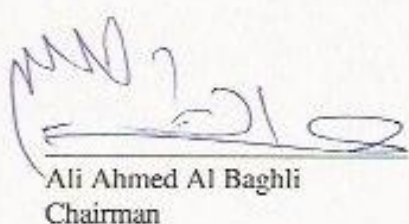 Ali Ahmed Al Baghli
Chairman